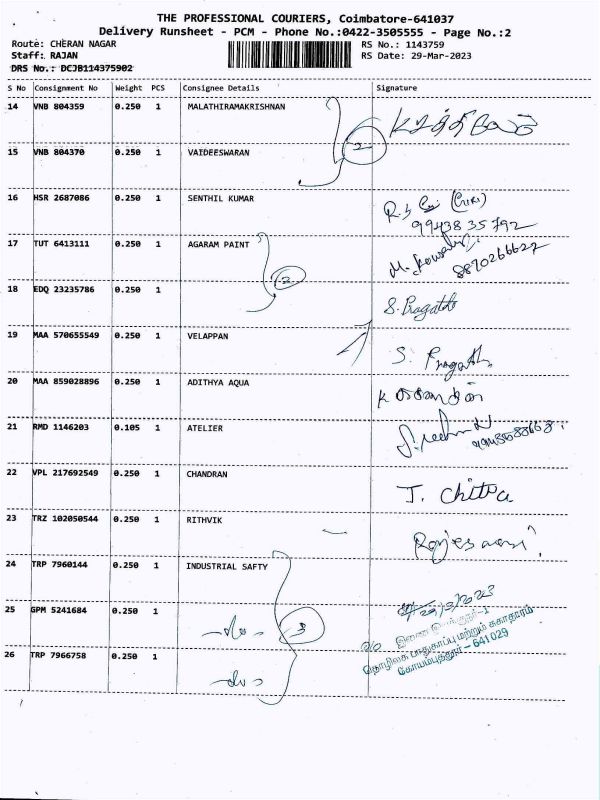 THE PROFESSIONAL COURIERS, Coimbatore-641037
Delivery Runsheet - PCM - Phone No.:0422-3505555 - Page No.:2
Route: CHERAN NAGAR RS No.: 1143759
Staff: RAJAN RS Date: 29-Mar-2023
DRS No.: DCJB114375902
S No Consignment No Weight PCS Consignee Details Signature
14 VNB 804359 0.250 1 MALATHIRAMAKRISHNAN
2
15 VNB 804370 0.250 1 VAIDEESWARAN
16 HSR 2687086 0.250 1 SENTHIL KUMAR
99438 35792
17 TUT 6413111 0.250 1 AGARAM PAINT
8870266627
2
18 EDQ 23235786 0.250 1 S. Pragath
19 MAA 570655549 0.250 1 VELAPPAN S. Pragath
20 MAA 859028896 0.250 1 ADITHYA AQUA
21 RMD 1146203 0.105 1 ATELIER
22 VPL 217692549 0.250 1 CHANDRAN J. Chitra
23 TRZ 102050544 0.250 1 RITHVIK
24 TRP 7960144 0.250 1 INDUSTRIAL SAFTY
25 GPM 5241684 0.250 1 -do- 3 29/3/2023
26 TRP 7966758 0.250 1 -do-
தொழிலக பாதுகாப்பு மற்றும் சுகாதாரம்
கோயம்புத்தூர் – 641 029